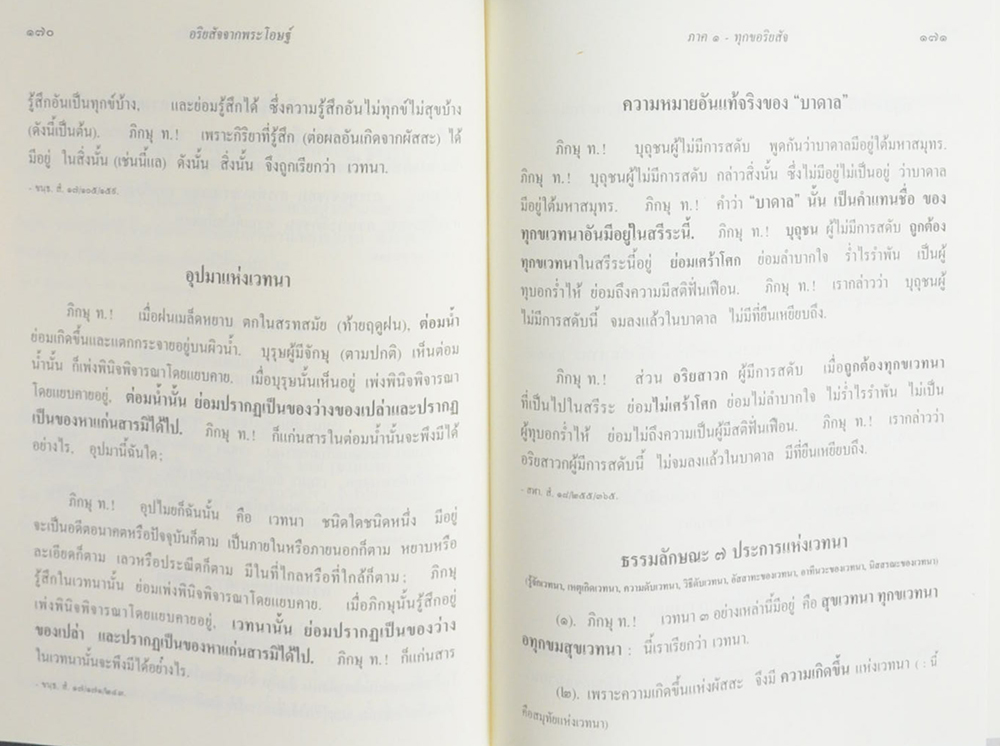 ๑๗๐
อริยสัจจากพระโอษฐ์
รู้สึกอันเป็นทุกข์บ้าง. และย่อมรู้สึกได้ ซึ่งความรู้สึกอันไม่ทุกข์ไม่สุขบ้าง
(ดังนี้เป็นต้น). ภิกษุ ท.! เพราะกิริยาที่รู้สึก (ต่อผลอันเกิดจากผัสสะ) ได้
มีอยู่ ในสิ่งนั้น (เช่นนี้แล) ดังนั้น สิ่งนั้น จึงถูกเรียกว่า เวทนา.
- ขนฺธ. สํ. ๑๗/๑๐๕/๑๕๙.
อุปมาแห่งเวทนา
ภิกษุ ท.! เมื่อฝนเมล็ดหยาบ ตกในสรทสมัย (ท้ายฤดูฝน), ต่อมน้ำ
ย่อมเกิดขึ้นและแตกกระจายอยู่บนผิวน้ำ. บุรุษผู้มีจักษุ (ตามปกติ) เห็นต่อม
น้ำนั้น ก็เพ่งพินิจพิจารณาโดยแยบคาย. เมื่อบุรุษนั้นเห็นอยู่ เพ่งพินิจพิจารณา
โดยแยบคายอยู่, ต่อมน้ำนั้น ย่อมปรากฏเป็นของว่างของเปล่าและปรากฏ
เป็นของหาแก่นสารมิได้ไป. ภิกษุ ท.! ก็แก่นสารในต่อมน้ำนั้นจะพึงมีได้
อย่างไร, อุปมานี้ฉันใด;
ภิกษุ ท.! อุปไมยก็ฉันนั้น คือ เวทนา ชนิดใดชนิดหนึ่ง มีอยู่
จะเป็นอดีตอนาคตหรือปัจจุบันก็ตาม เป็นภายในหรือภายนอกก็ตาม หยาบหรือ
ละเอียดก็ตาม เลวหรือประณีตก็ตาม มีในที่ไกลหรือที่ใกล้ก็ตาม; ภิกษุ
รู้สึกในเวทนานั้น ย่อมเพ่งพินิจพิจารณาโดยแยบคาย. เมื่อภิกษุนั้นรู้สึกอยู่
เพ่งพินิจพิจารณาโดยแยบคายอยู่, เวทนานั้น ย่อมปรากฏเป็นของว่าง
ของเปล่า และปรากฏเป็นของหาแก่นสารมิได้ไป. ภิกษุ ท.! ก็แก่นสาร
ในเวทนานั้นจะพึงมีได้อย่างไร.
- ขนฺธ. สํ. ๑๗/๑๗๑/๒๔๓.
ภาค ๑ - ทุกขอริยสัจ
๑๗๑
ความหมายอันแท้จริงของ “บาดาล”
ภิกษุ ท.! บุถุชนผู้ไม่มีการสดับ พูดกันว่าบาดาลมีอยู่ใต้มหาสมุทร.
ภิกษุ ท.! บุถุชนผู้ไม่มีการสดับ กล่าวสิ่งนั้น ซึ่งไม่มีอยู่ไม่เป็นอยู่ ว่าบาดาล
มีอยู่ใต้มหาสมุทร. ภิกษุ ท.! คำว่า “บาดาล” นั้น เป็นคำแทนชื่อ ของ
ทุกขเวทนาอันมีอยู่ในสรีระนี้. ภิกษุ ท.! บุถุชน ผู้ไม่มีการสดับ ถูกต้อง
ทุกขเวทนาในสรีระนี้อยู่ ย่อมเศร้าโศก ย่อมลำบากใจ ร่ำไรรำพัน เป็นผู้
ทุบอกร่ำไห้ ย่อมถึงความมีสติฟั่นเฟือน. ภิกษุ ท.! เรากล่าวว่า บุถุชนผู้
ไม่มีการสดับนี้ จมลงแล้วในบาดาล ไม่มีที่ยืนเหยียบถึง.
ภิกษุ ท.! ส่วน อริยสาวก ผู้มีการสดับ เมื่อถูกต้องทุกขเวทนา
ที่เป็นไปในสรีระ ย่อมไม่เศร้าโศก ย่อมไม่ลำบากใจ ไม่ร่ำไรรำพัน ไม่เป็น
ผู้ทุบอกร่ำไห้ ย่อมไม่ถึงความเป็นผู้มีสติฟั่นเฟือน. ภิกษุ ท.! เรากล่าวว่า
อริยสาวกผู้มีการสดับนี้ ไม่จมลงแล้วในบาดาล มีที่ยืนเหยียบถึง.
- สฬา. สํ. ๑๘/๒๕๕/๓๖๕.
ธรรมลักษณะ ๗ ประการแห่งเวทนา
(รู้จักเวทนา, เหตุเกิดเวทนา, ความดับเวทนา, วิธีดับเวทนา, อัสสาทะของเวทนา, อาทีนวะของเวทนา, นิสสรณะของเวทนา)
(๑). ภิกษุ ท.! เวทนา ๓ อย่างเหล่านี้มีอยู่ คือ สุขเวทนา ทุกขเวทนา
อทุกขมสุขเวทนา : นี้เราเรียกว่า เวทนา.
(๒). เพราะความเกิดขึ้นแห่งผัสสะ จึงมี ความเกิดขึ้น แห่งเวทนา (: นี้
คือสมุทัยแห่งเวทนา)